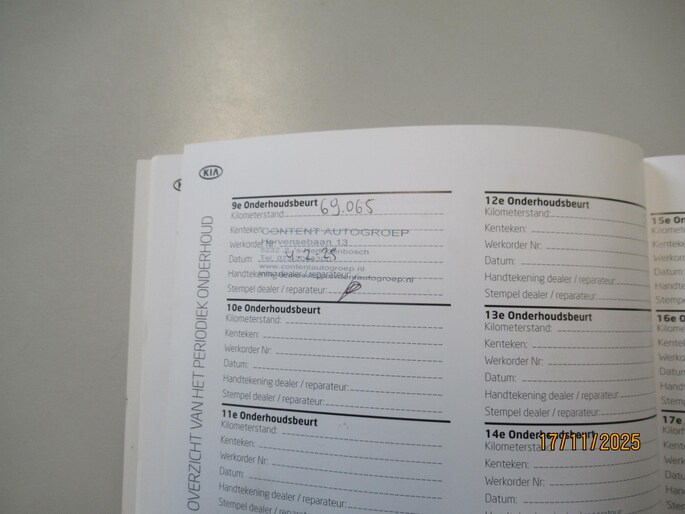 KIA
OVERZICHT VAN HET PERIODIEK ONDERHOUD
9e Onderhoudsbeurt
Kilometerstand: 69.065
Kenteken:
CONTENT AUTOGROEP
Werkorder Nr:
Hervensebaan 13
Datum: 4-2-25
www.contentautogroep.nl
Handtekening dealer / reparateur:
Stempel dealer / reparateur:
10e Onderhoudsbeurt
Kilometerstand:
Kenteken:
Werkorder Nr:
Datum:
Handtekening dealer / reparateur:
Stempel dealer / reparateur:
11e Onderhoudsbeurt
Kilometerstand:
Kenteken:
Werkorder Nr:
Datum:
Handtekening dealer / reparateur:
Stempel dealer / reparateur:
12e Onderhoudsbeurt
Kilometerstand:
Kenteken:
Werkorder Nr:
Datum:
Handtekening dealer / reparateur:
Stempel dealer / reparateur:
13e Onderhoudsbeurt
Kilometerstand:
Kenteken:
Werkorder Nr:
Datum:
Handtekening dealer / reparateur:
Stempel dealer / reparateur:
14e Onderhoudsbeurt
Kenteken:
Werkorder Nr:
Datum:
15e On
Kilome
Kentek
Werko
Datum
Handt
Stemp
16e O
Kilom
Kente
Werk
Datu
Hand
Stem
17e
Kilor
Ken
We
Dat
Ha
17/11/2025